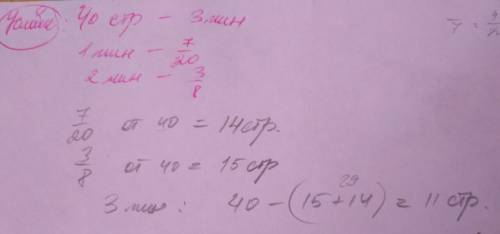 Условие: 40 стр - 3 мин
1 мин - 7/20
2 мин - 3/8
7/20 от 40 = 14 стр.
3/8 от 40 = 15 стр
29
3 мин: 40 - (15 + 14) = 11 стр.